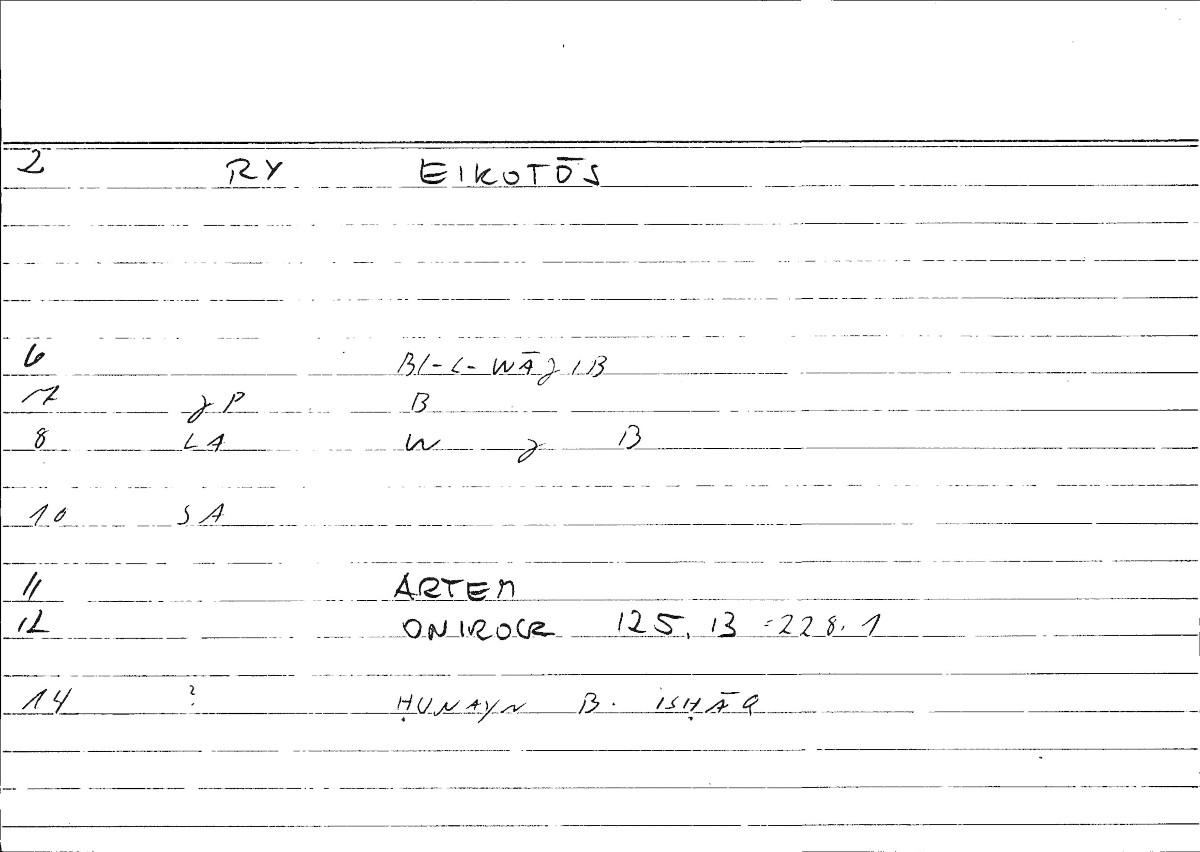 2 RY EIKOTŌS
6 BI-L-WĀJIB
7 JP B
8 LA W J B
10 SA
11 ARTEM
12 ONIROCR 125, 13 =228.1
14 ? ḤUNAYN B. ISḤĀQ